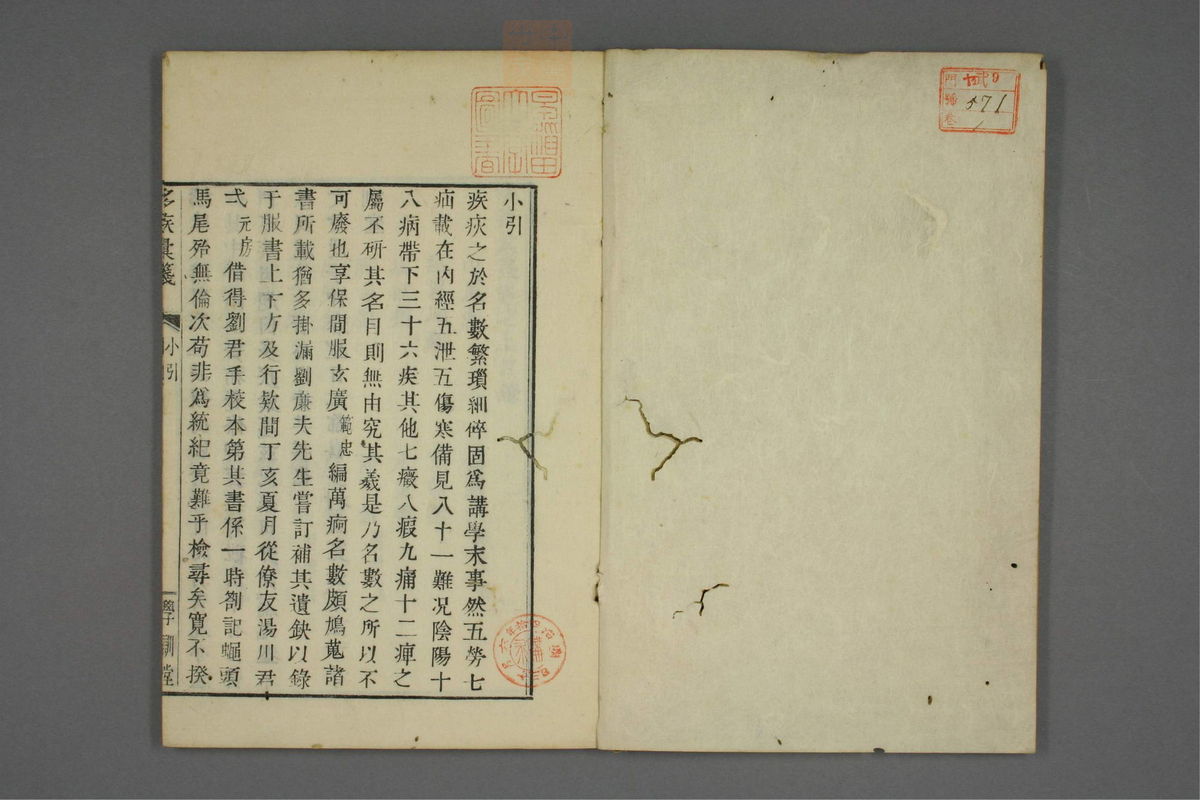 小引
疾疢之於名數繁瑣細倅固爲講學末事然五勞七
疝載在内經五泄五傷寒備見八十一難况陰陽十
八病帶下三十六疾其他七癥八瘕九痛十二痺之
屬不研其名目則無由究其義是乃名數之所以不
可廢也享保間服玄廣範忠編萬痾名數頗鳩蒐諸
書所載猶多掛漏劉廉夫先生嘗訂補其遺缺以錄
于服書上下方及行欵間丁亥夏月從僚友湯川君
弌元房借得劉君手校本第其書係一時劄記蠅頭
馬尾殆無倫次苟非爲統紀竟難乎檢尋矣寬不揆
名疾彙箋
小引
學訓堂
門
號
卷
9
571
1